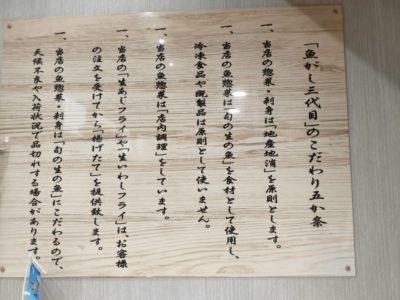 「魚がし三代目」のこだわり五か条
一、当店の惣菜・刺身は「地産地消」を原則とします。
一、当店の魚惣菜は「旬の生の魚」を食材として使用し、
冷凍食品や既製品は原則として使いません。
一、当店の魚惣菜は「店内調理」をしています。
一、当店の「生あじフライ」や「生いわしフライ」は、お客様
の注文を受けてから「揚げたて」を提供致します。
一、当店の魚惣菜・刺身は「旬の生の魚」にこだわるので、
天候不良や入荷状況で品切れする場合があります。